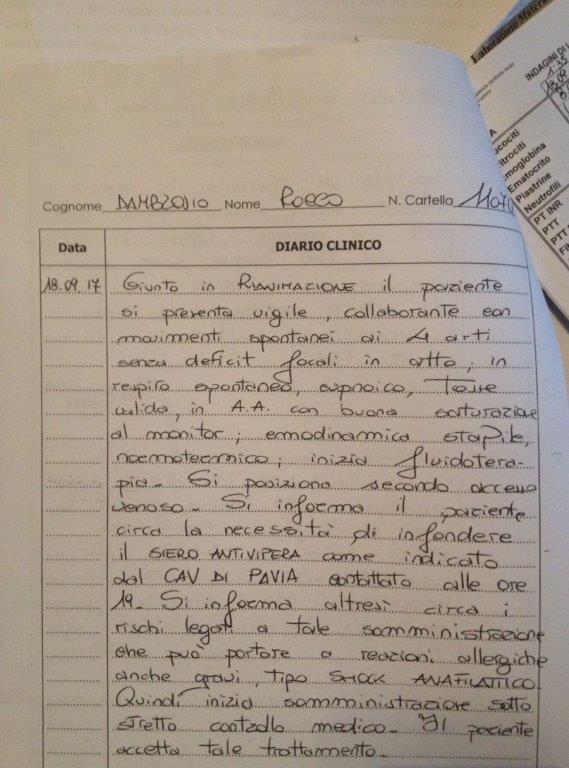 Laboratorio Matera
INDAGINI DI L
Ematocrito
Piastrine
Neutrofili
PT INR
PTT
PTT
Cognome DAMBROSIO Nome ROCCO N. Cartella
Data DIARIO CLINICO
18.09.17 Giunto in RIANIMAZIONE il paziente
si presenta vigile, collaborante con
movimenti spontanei ai 4 arti
senza deficit focali in atto; in
respiro spontaneo, eupnoico, Tosse
valida, in A.A. con buona saturazione
al monitor; emodinamica stabile,
normotermico; inizia fluidotera-
pia - Si posiziona secondo accesso
venoso - Si informa il paziente
circa la necessità di infondere
il SIERO ANTIVIPERA come indicato
dal CAV DI PAVIA contattato alle ore
19 - Si informa altresì circa i
rischi legati a tale somministrazione
che può portare a reazioni allergiche
anche gravi, tipo SHOCK ANAFILATTICO
Quindi inizia somministrazione sotto
stretto controllo medico - Il paziente
accetta tale trattamento -